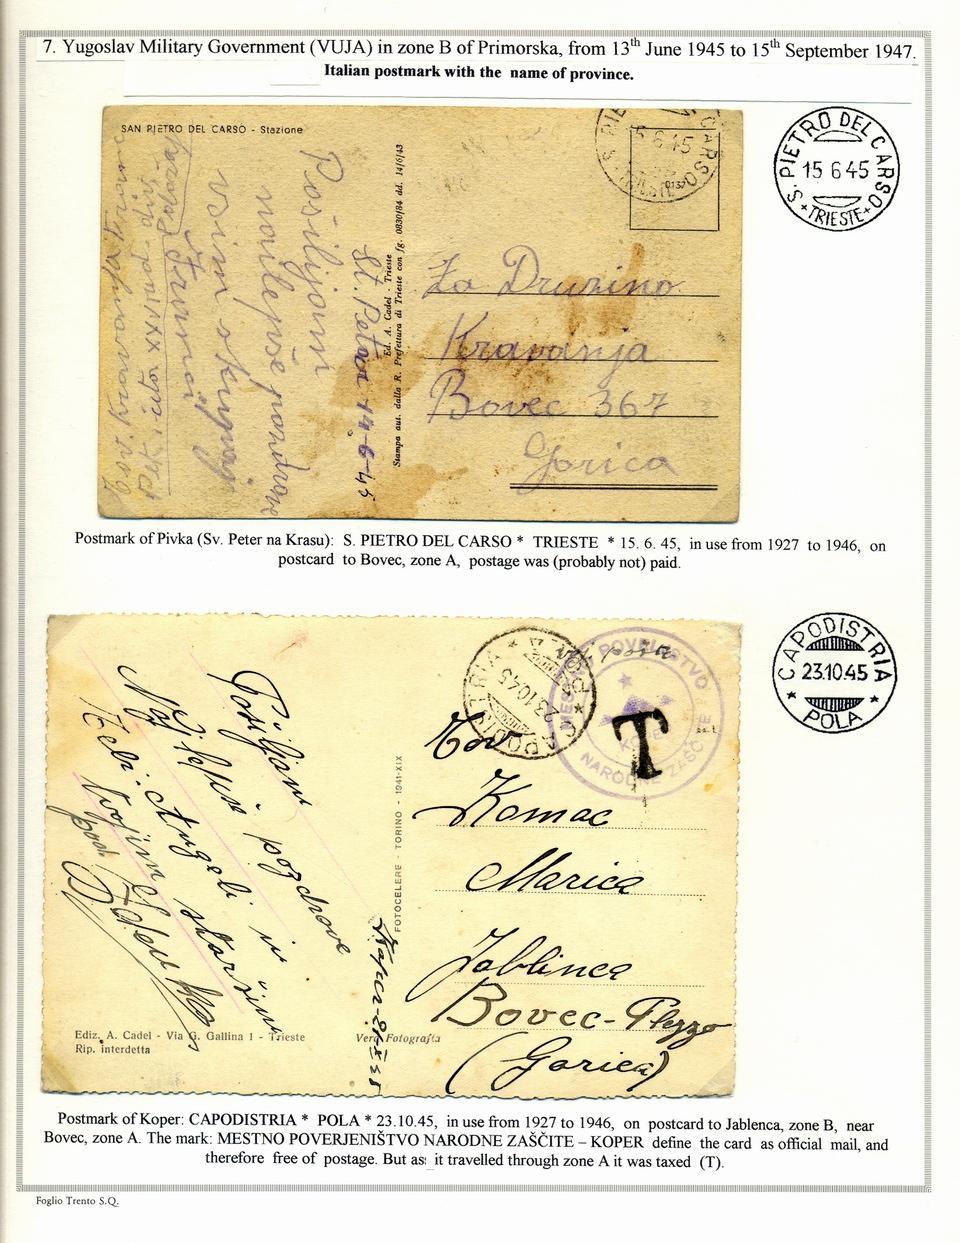 7. Yugoslav Military Government (VUJA) in zone B of Primorska, from 13th June 1945 to 15th September 1947.
Italian postmark with the name of province.
SAN PIETRO DEL CARSO - Stazione
Pošiljam
najlepše pozdrave
vsim skupaj
St. Peter 14-6-45
Ed. A. Cadel - Trieste
Stampa aut. dalla R. Prefettura di Trieste con fg. 0830/84 dd. 14/6/43
Za Družino
Kravanja
Bovec 367
Gorica
S. PIETRO DEL CARSO
15 6 45
TRIESTE
Postmark of Pivka (Sv. Peter na Krasu): S. PIETRO DEL CARSO * TRIESTE * 15. 6. 45, in use from 1927 to 1946, on
postcard to Bovec, zone A, postage was (probably not) paid.
Pošiljam
Najlepše pozdrave in
Tebi
FOTOCELERE - TORINO - 1941-XIX
Ediz. A. Cadel - Via G. Gallina 1 - Trieste
Rip. interdetta
Vera Fotografia
CAPODISTRIA
23.10.45
POLA
MESTNO POVERJENIŠTVO
NARODNE ZAŠČITE
KOPER
T
Tov
Komac
Marica
Jablinca
Bovec-Plezzo
(Gorica)
CAPODISTRIA
23.10.45
* POLA *
Postmark of Koper: CAPODISTRIA * POLA * 23.10.45, in use from 1927 to 1946, on postcard to Jablenca, zone B, near
Bovec, zone A. The mark: MESTNO POVERJENIŠTVO NARODNE ZAŠČITE – KOPER define the card as official mail, and
therefore free of postage. But as it travelled through zone A it was taxed (T).
Foglio Trento S.Q.